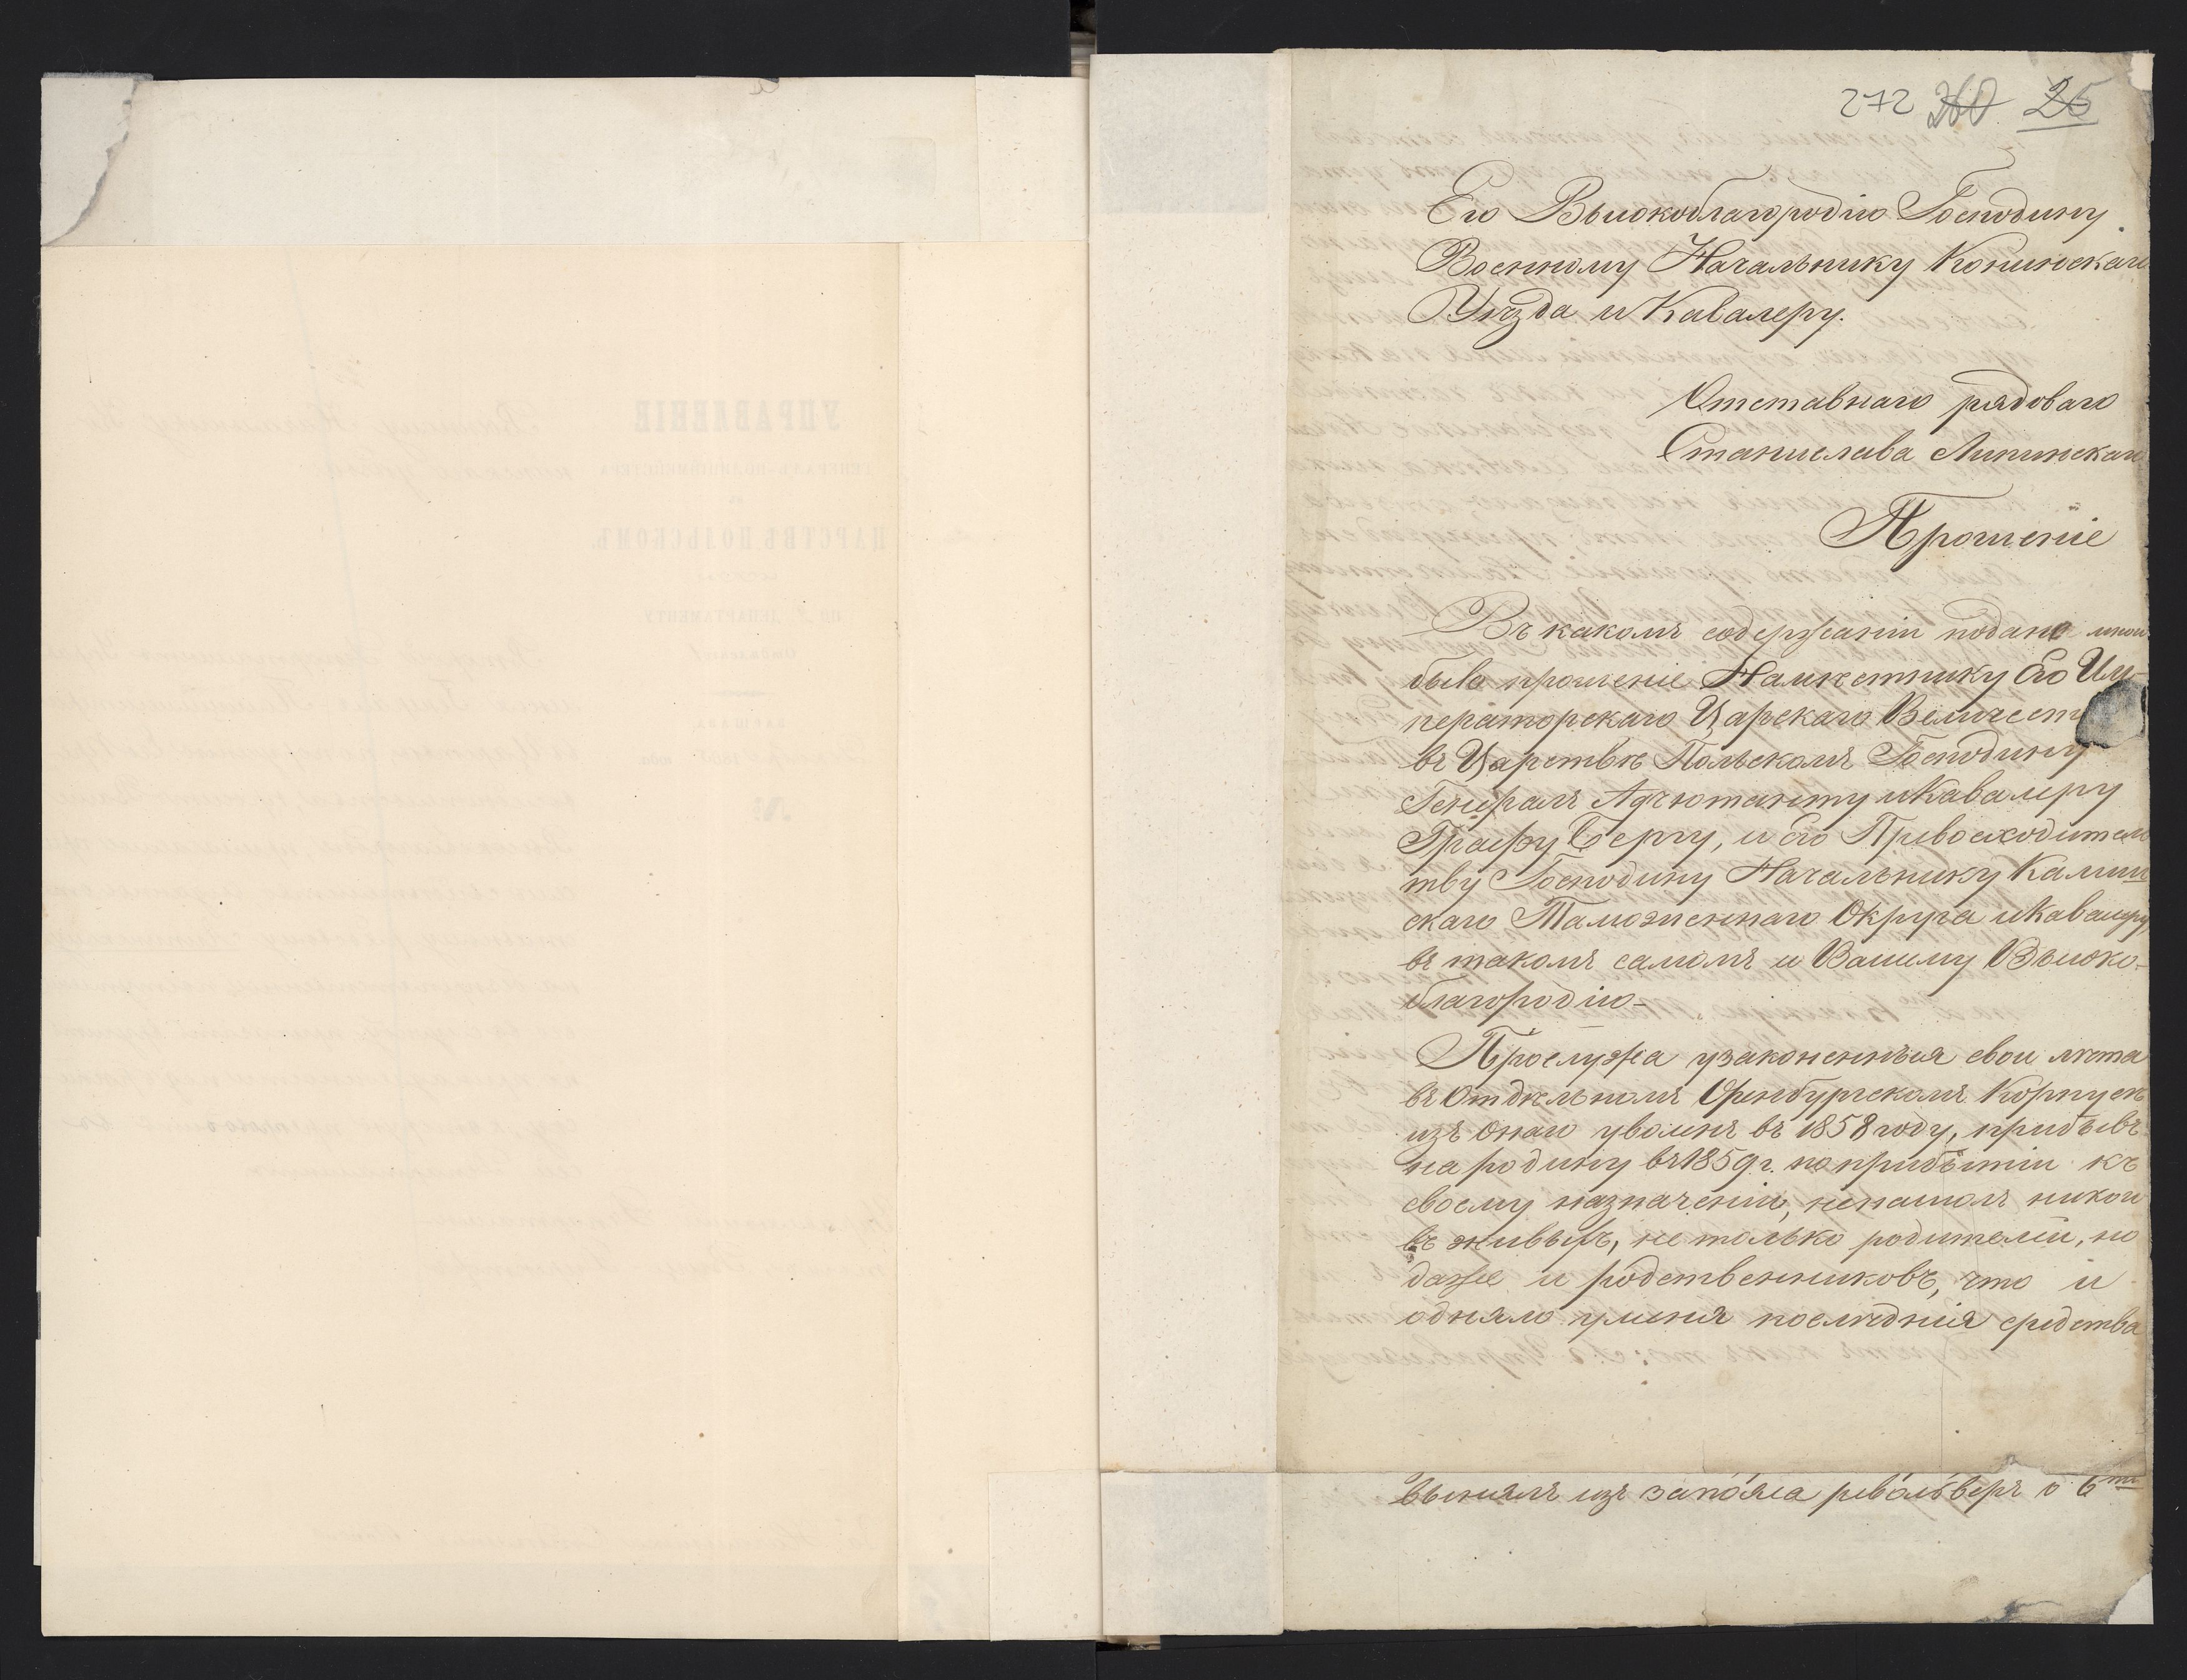 272 260 26
Его Высокоблагородію Господину
Военному Начальнику Конинскаго
Уѣзда и Кавалеру.
Отставнаго рядоваго
Станислава Липинскаго
Прошеніе
Въ какомъ содержаніи подано мною
было прошеніе Намѣстнику Его Им-
ператорскаго Царскаго Величест
въ Царствѣ Польскомъ Господину
Генералъ Адъютанту и Кавалеру
Графу Бергу, и Его Превосходитель
тву Господину Начальнику Калиш
скаго Таможеннаго Округа и Кавалеру,
въ такомъ самомъ и Вашему Высоко-
благородію-
Прослужа узаконенныя свои лѣта
въ Отдѣльномъ Оренбургскомъ Корпусѣ
изъ онаго уволенъ въ 1858 году, прибывъ
на родину въ 1859 г. по прибытіи къ
своему назначенію, ненашолъ никого
въ живыхъ, не только родителей, но
даже и родственниковъ, что и
одняло уменя послѣднія средства
вынялъ изъ запояса револьверъ о 6ти